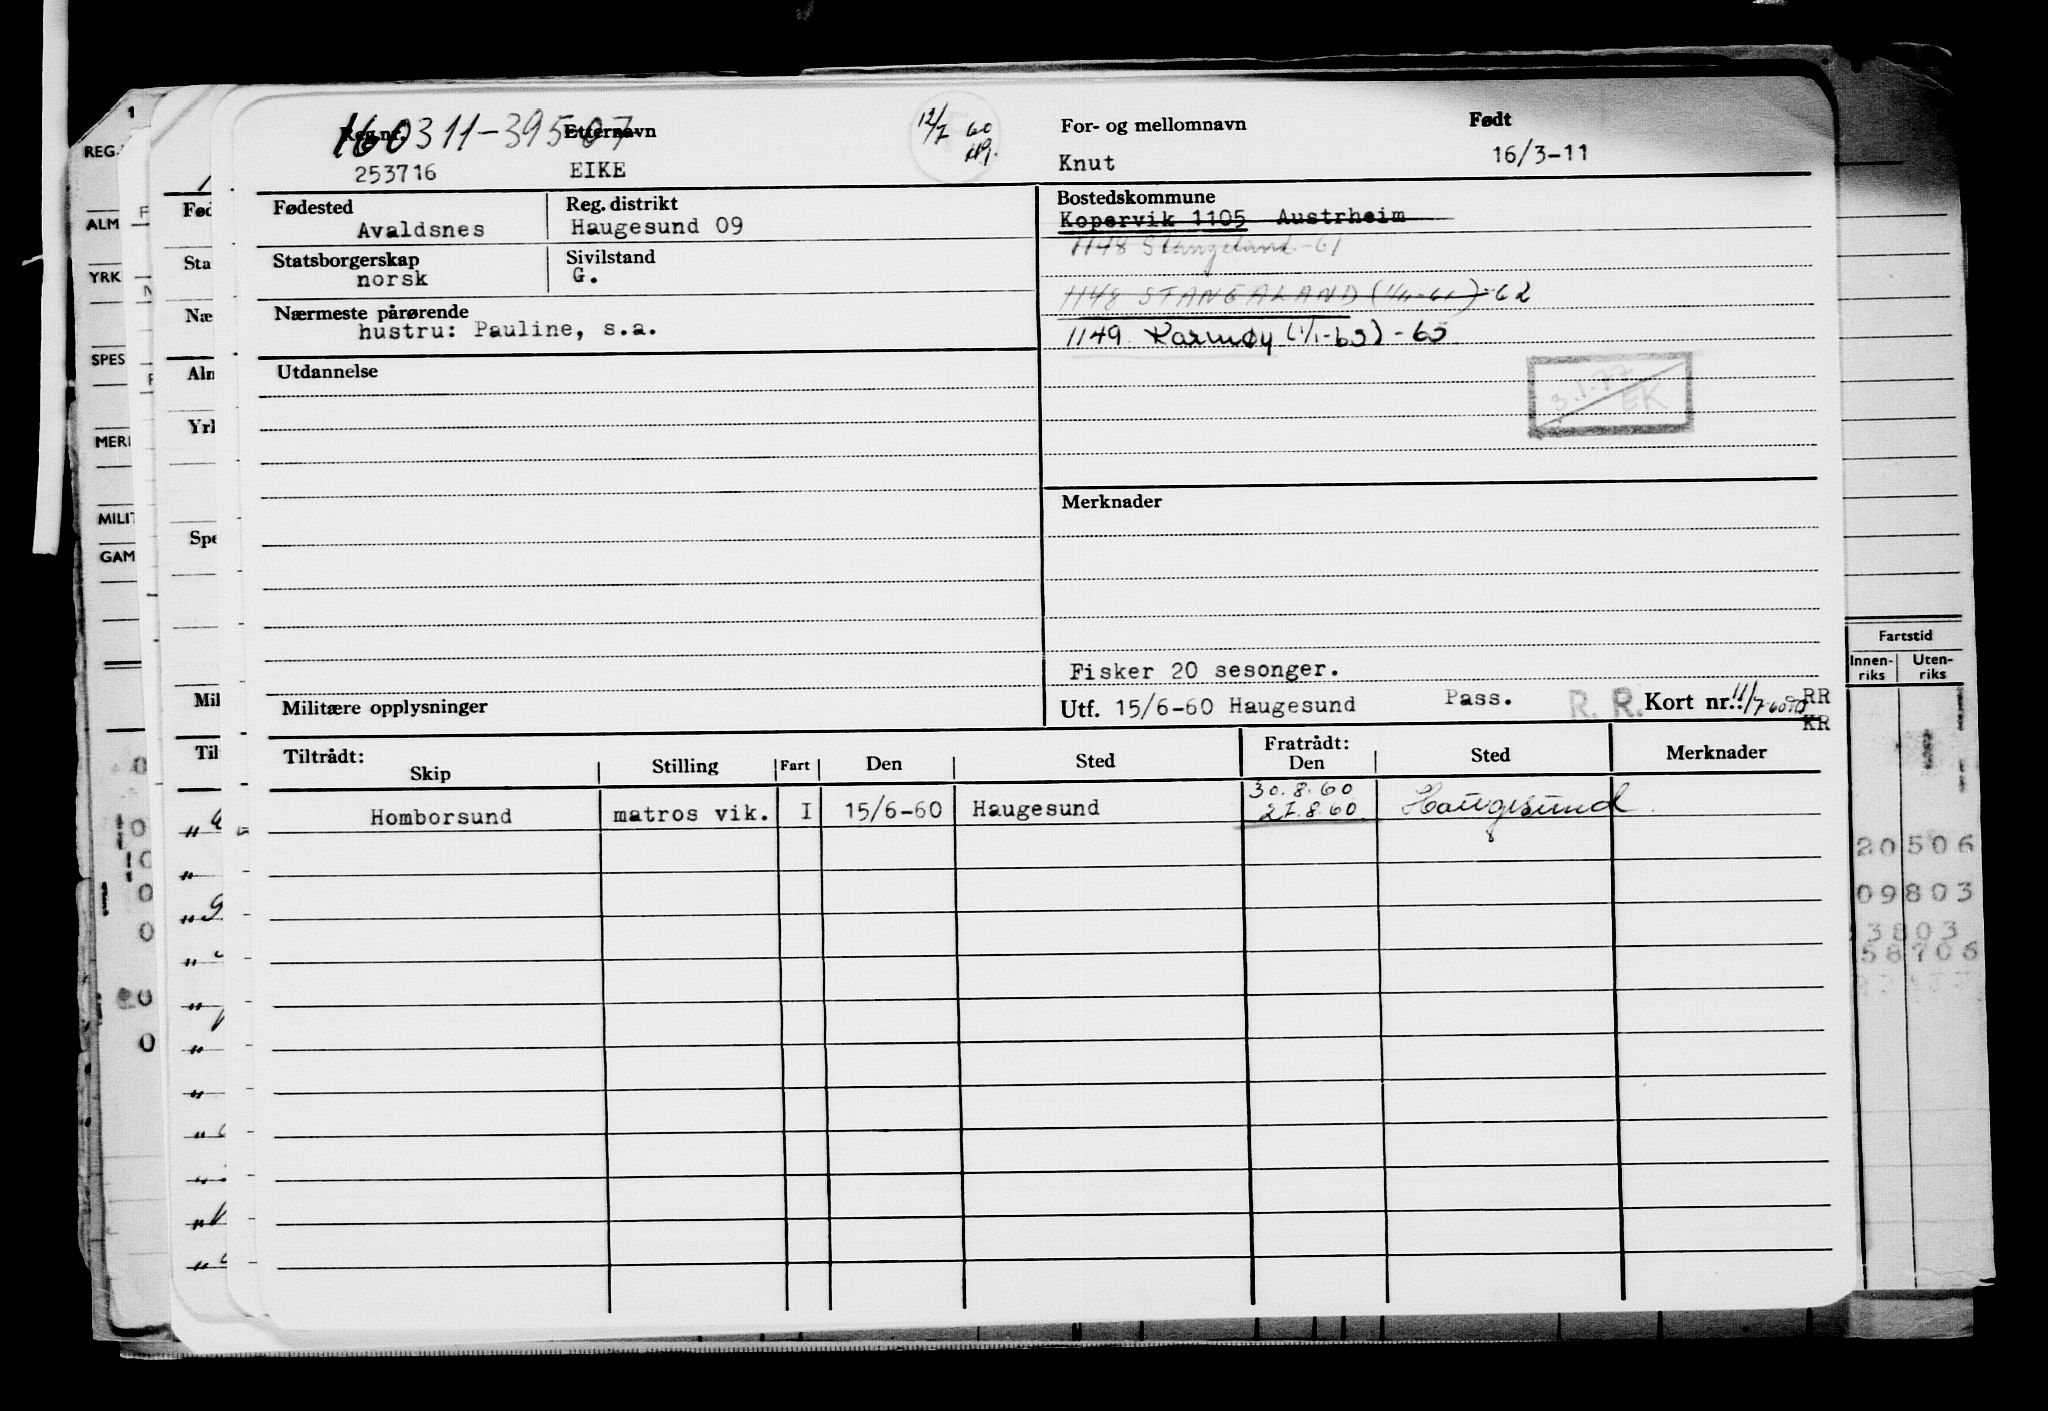 160311-39507
12/7 60
Reg.nr. Etternavn For- og mellomnavn Født
253716 EIKE Knut 16/3-11
Fødested Reg. distrikt Bostedskommune
Avaldsnes Haugesund 09 Kopervik 1105 Austrheim
1148 Stangeland -61
Statsborgerskap Sivilstand
norsk G.
1148 STANGALAND -62
Nærmeste pårørende
hustru: Pauline, s.a.
1149 Karmøy (1/1-65) - 65
Utdannelse
3.1.77
EK
Merknader
Fisker 20 sesonger.
Militære opplysninger Utf. 15/6-60 Haugesund Pass. R. R. Kort nr. 11/7-60 RR
KR
Tiltrådt: Fratrådt:
Skip Stilling Fart Den Sted Den Sted Merknader
30.8.60
Homborsund matros vik. I 15/6-60 Haugesund 21.8.60 Haugesund
REG.
ALM
YRK
SPES
MERI
MILIT
GAM
Fød
Sta
Næ
Aln
Yrl
Spe
Mil
Til
Fartstid
Innen-riks Uten-riks
20506
09803
3803
58706